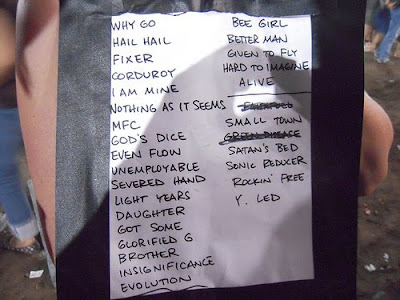 WHY GO
HAIL HAIL
FIXER
CORDUROY
I AM MINE
NOTHING AS IT SEEMS
MFC
GOD'S DICE
EVEN FLOW
UNEMPLOYABLE
SEVERED HAND
LIGHT YEARS
DAUGHTER
GOT SOME
GLORIFIED G
BROTHER
INSIGNIFICANCE
EVOLUTION
BEE GIRL
BETTER MAN
GIVEN TO FLY
HARD TO IMAGINE
ALIVE
FAITHFULL
SMALL TOWN
GREEN DISEASE
SATAN'S BED
SONIC REDUCER
ROCKIN' FREE
Y. LED